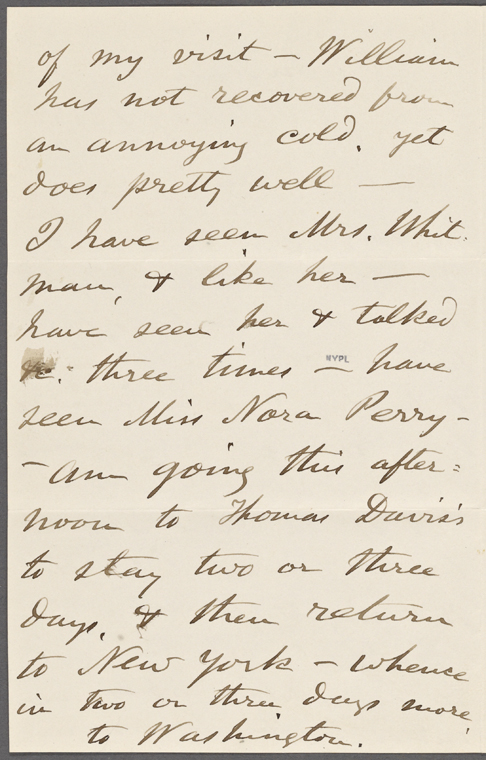 of my visit — William
has not recovered from
an annoying cold, yet
does pretty well —
I have seen Mrs. Whit-
man, & like her —
have seen her & talked
&c. three times — have
NYPL
seen Miss Nora Perry —
— am going this after-
noon to Thomas Davis's
to stay two or three
days, & then return
to New York — whence
in two or three days more,
to Washington.